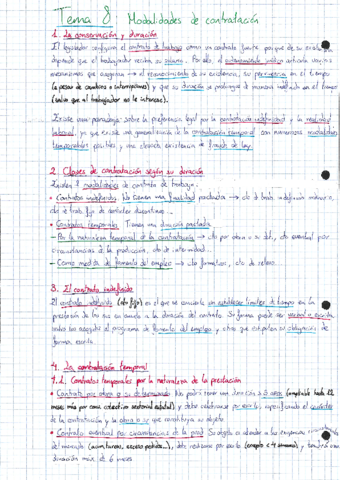 Tema 8 Modalidades de contratación
1. La conservación y duración
El legislador configura el contrato de trabajo como un contrato fuerte porque de su existencia
depende que el trabajador reciba su salario. Por ello, el ordenamiento jurídico articula varios
mecanismos que aseguran → el reconocimiento de su existencia, su pervivencia en el tiempo
(a pesar de cambios e interrupciones) y que su duración se prolongue de manera indefinida en el tiempo
(salvo que al trabajador no le interese).
Existe una paradoja sobre la preferencia legal por la contratación indefinida y la realidad
laboral, ya que existe una generalización de la contratación temporal con numerosas modalidades
temporales posibles y una elevada existencia de fraude de ley.
2. Clases de contratación según su duración
Existen modalidades de contrato de trabajo:
• Contratos indefinidos. No tienen una finalidad pactada → cto de trab. indefinido ordinario,
cto de trab. fijo de carácter discontinuo...
• Contratos temporales. Tienen una duración pactada
- Por la naturaleza temporal de la contratación → cto por obra o sv det., cto eventual por
circunstancias de la producción, cto de interinidad...
- Como medida de fomento del empleo → cto formativo, cto de relevo.
3. El contrato indefinido
El contrato indefinido (cto fijo) es el que se concierta sin establecer límites de tiempo en la
prestación de los sv en cuanto a la duración del contrato. Su forma puede ser verbal o escrita,
salvo los acogidos al programa de fomento del empleo y otros que estipulen su obligación de
forma escrita.
4. La contratación temporal
4.1. Contratos temporales por la naturaleza de la prestación
• Contrato por obra o sv determinado. No podrá tener una duración > 3 años (ampliable hasta 12
meses más por conv. colectivo sectorial estatal) y debe celebrarse por escrito, especificando el carácter
de la contratación y la obra o sv que constituya su objeto.
• Contrato eventual por circunstancias de la prod. Su objeto es atender a las exigencias
del mercado (acum. tareas, exceso pedidos...), debe realizarse por escrito (excepto < 4 semanas) y tendrá una
duración máx. de 6 meses